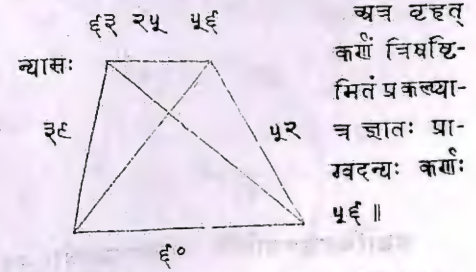 ६३ २५ ५६
न्यासः
३९
५२
६०
अत्र वृहत्
कर्णं त्रिषष्टि-
मितं प्रकल्प्या-
त्र ज्ञातः प्रा-
ग्वदन्यः कर्णः
५६ ॥